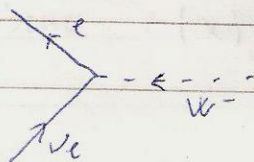 e
W-
νe